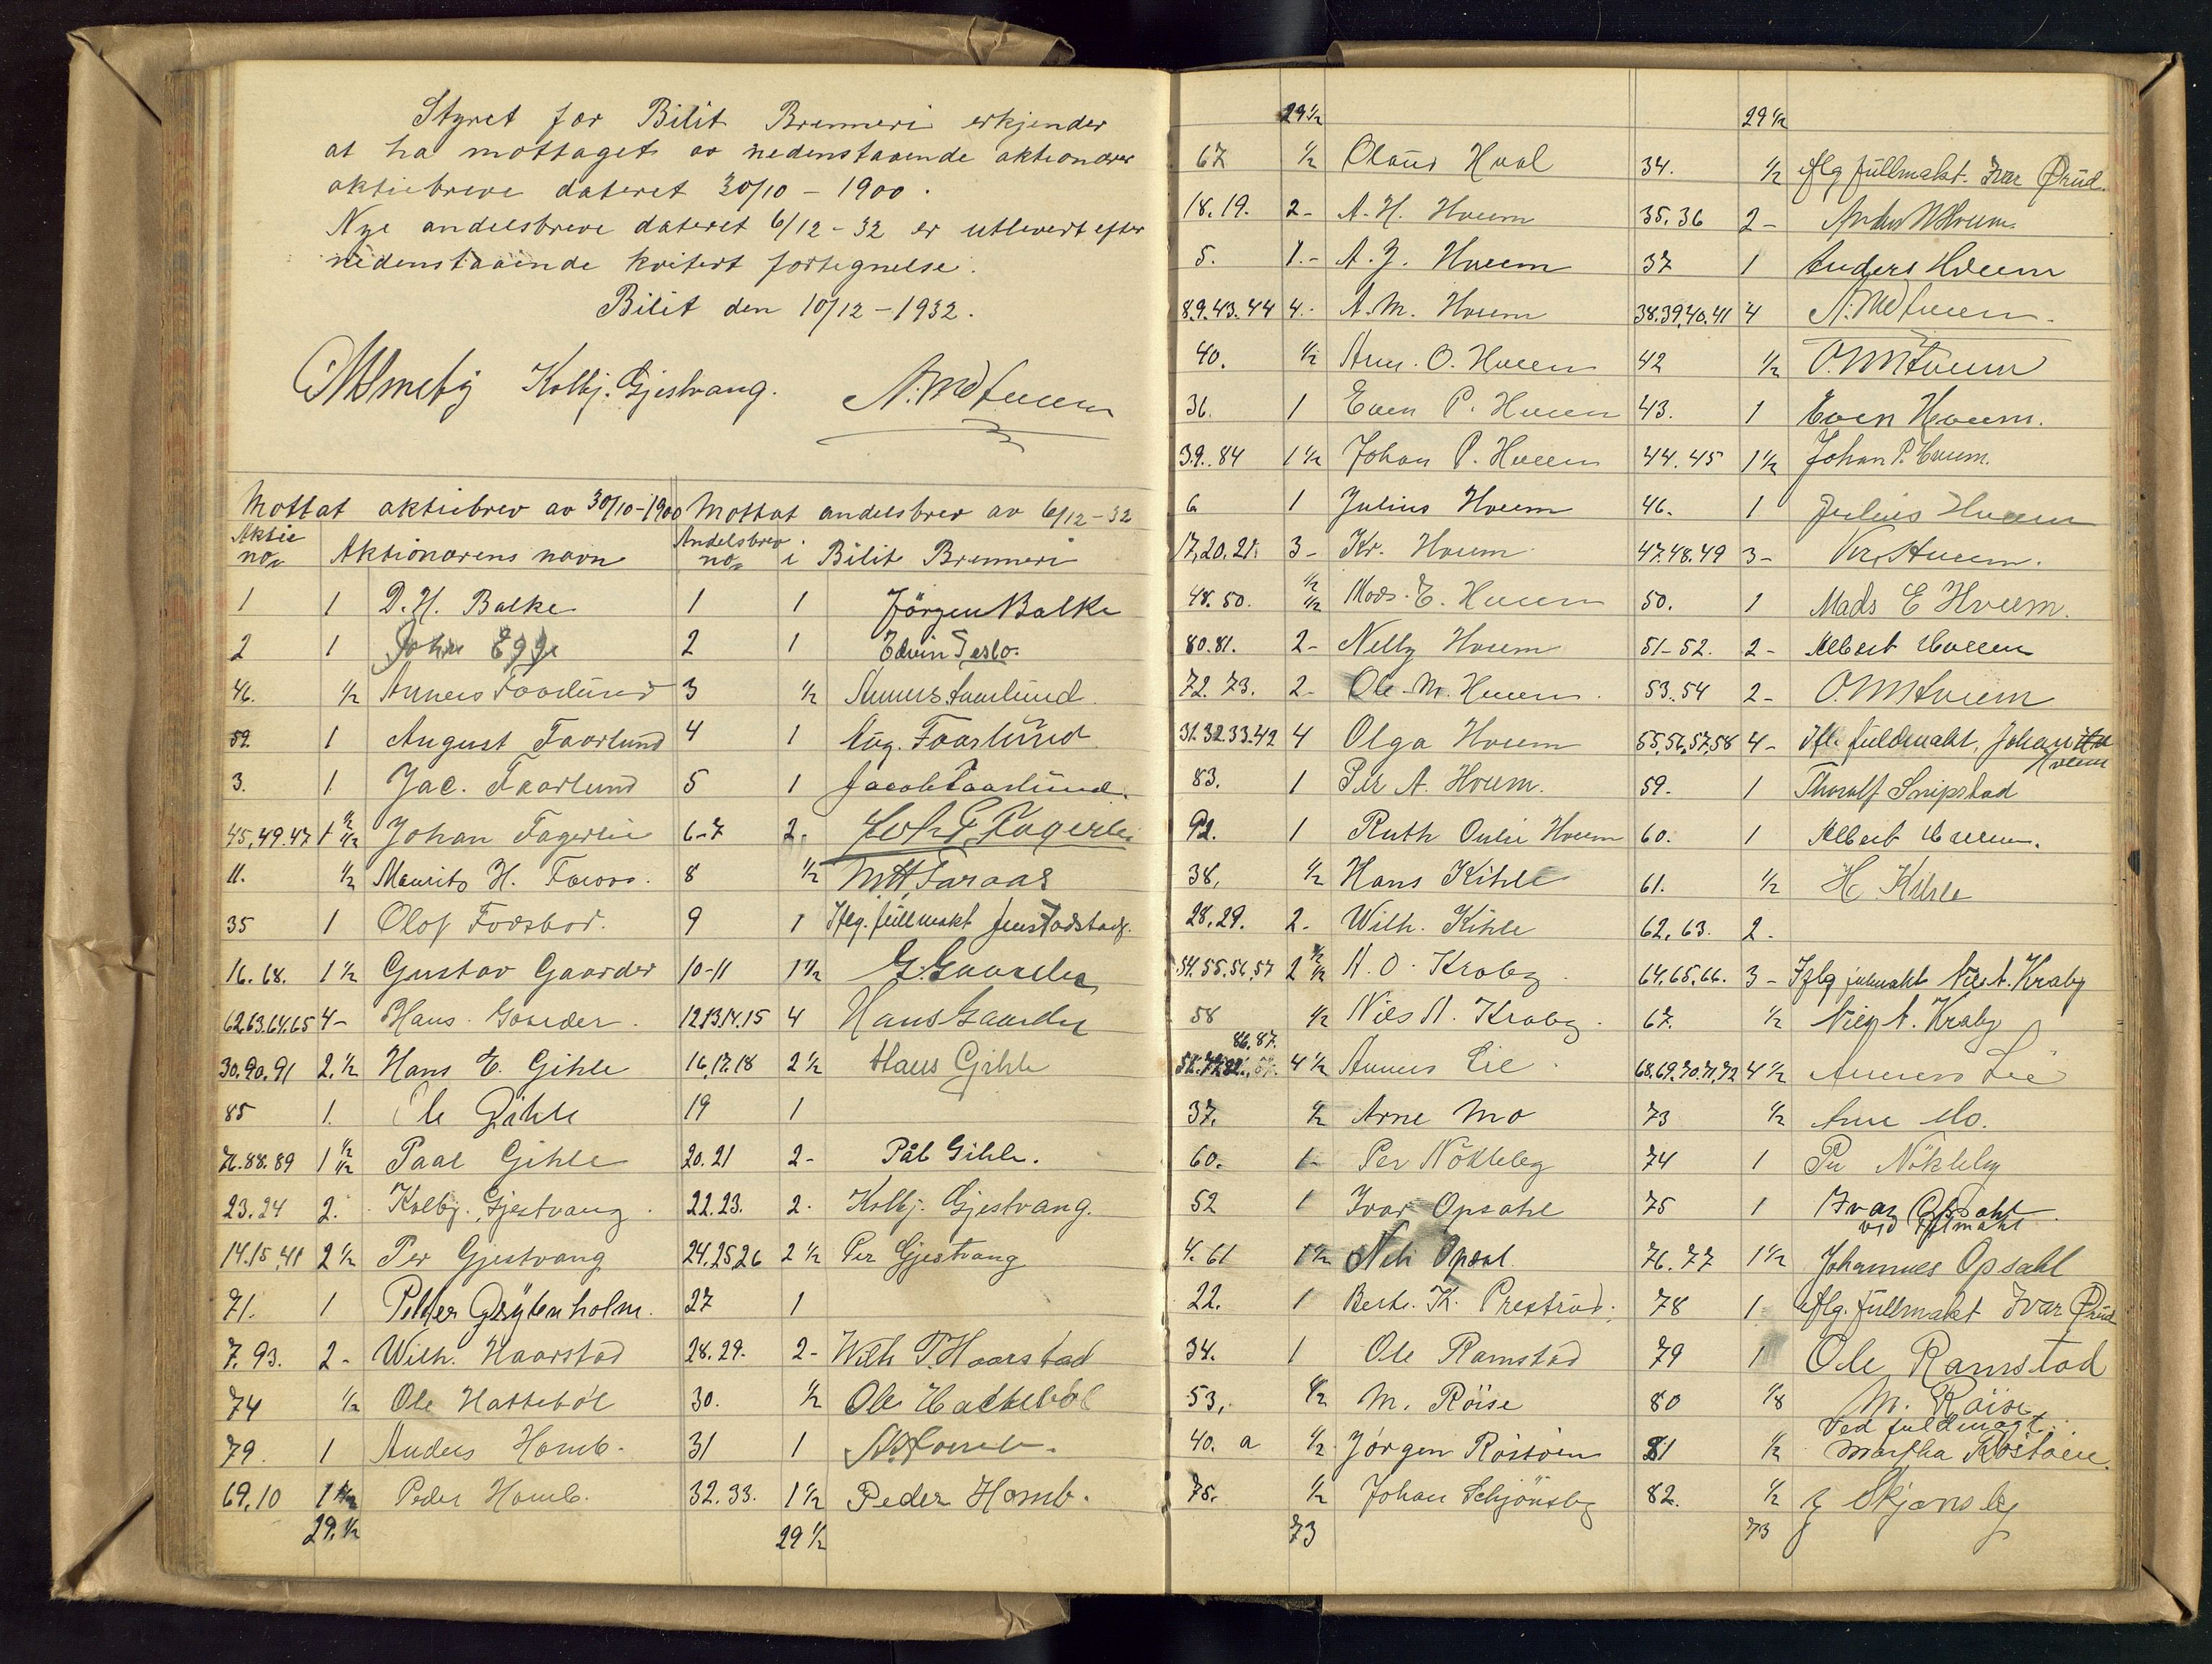 Styret for Bilit Brenneri erkjender
at ha mottaget av nedenstaaende aktionærer
aktiebreve dateret 30/10 - 1900.
Nye andelsbreve dateret 6/12 - 32 er utlevert efter
nedenstaaende kvitert fortegnelse.
Bilit den 10/12 - 1932.
Kolbj. Gjestvang. A. M. Hveem
Mottat aktiebrev av 30/10-1900 Mottat andelsbrev av 6/12-32
Aktie no. Aktionærens navn Andelsbrev no. i Bilit Brenneri
1 1 D. H. Balke 1 1 Jörgen Balke
2 1 Johan Egge 2 1 Edvin Teslo.
46. 1/2 Anners Faarlund 3 1/2 Anners Faarlund
59. 1 August Faarlund 4 1 Aug. Faarlund
3. 1 Jac. Faarlund 5 1 Jacob Faarlund.
45,49.47 1 1/2 1/2 Johan Fagerlie 6-7 2- Joh. F. Fagerlie
11. 1/2 Maurits H. Faraas. 8 1/2 M. H. Faraas
35 1 Olof Fodstad. 9 1 Iflg. fullmakt Jens Fodstad.
16. 68. 1 1/2 Gustav Gaarder 10-11 1 1/2 G. Gaarder
62.63.64.65 4- Hans Gaarder. 12.13.14.15 4 Hans Gaarder
30.90.91 2 1/2 Hans E. Gihle 16,17.18 2 1/2 Hans Gihle
85 1. Ole Gihle 19 1
76.88.89 1 1/2 1/2 Paal Gihle 20.21 2- Pål Gihle.
23.24 2. Kolbj. Gjestvang. 22.23. 2. Kolbj. Gjestvang.
14.15,41 2 1/2 Per Gjestvang 24,25,26 2 1/2 Per Gjestvang
71. 1 Petter Grytenholm. 27 1
7. 93. 2- Wilh. Haarstad 28.29. 2- Wilh P. Haarstad
74 1/2 Ole Hatteböl 30. 1/2 Ole Hatteböl
79. 1 Anders Homb. 31 1 A. Homb.
69,10 1 1/2 Peder Homb. 32.33. 1 1/2 Peder Homb.
29 1/2 29 1/2
29 1/2 29 1/2
67 1/2 Olaus Hval 34. 1/2 iflg fullmakt. Ivar Ørud.
18.19. 2- A. H. Hveem 35.36 2- Anders Hveem.
5. 1.- A. J. Hveem 37 1 Anders Hveem
8.9.43.44 4.- A. M. Hveem 38.39,40.41 4 A. M. Hveem.
40. 1/2 Arn. O. Hveem 42 1/2 O. M. Hveem
36. 1 Even P. Hveem 43. 1 Even Hveem.
39..84 1 1/2 Johan P. Hveem 44.45 1 1/2 Johan P. Hveem.
6 1 Julius Hveem 46. 1 Julius Hveem
17,20.21. 3- Kr. Hveem 47.48.49 3- Kr. Hveem.
48.50. 1/2 1/2 Mads. E. Hveem 50. 1 Mads E Hveem.
80.81. 2- Nelly Hveem 51-52. 2- Albert Hveem
72. 73. 2- Ole M. Hveem. 53.54 2- O. M. Hveem
31.32.33.42 4 Olga Hveem 55,56,57,58 4- Ifl. fuldmakt, Johan Hveem
83. 1 Per A. Hveem. 59. 1 Thoralf Snipstad
92. 1 Ruth Oulie Hveem 60. 1 Albert Hveem.
38, 1/2 Hans Kihle 61. 1/2 H. Kihle
28.29. 2- Wilh. Kihle 62.63. 2-
54.55.56,57 2 1/2 1/2 A. O. Kraby 64,65,66. 3- Iflg fulmakt Nils A. Kraby
58 1/2 Nils A. Kraby. 67. 1/2 Nils A. Kraby
86.87. 4 1/2 Anners Lie 68.69.70.71,72 4 1/2 Anners Lie
37. 1/2 Arne Mo 73 1/2 Arne Mo.
60. 1 Per Nökleby 74 1 Per Nökleby
52 1 Ivar Opsahl 75 1 Ivar Opsahl
ved fulmakt
4. 61 1 1/2 Opsal. 76.77 1 1/2 Johannes Opsahl
22. 1 Berte. K. Prestrud. 78 1 iflg. fullmakt Ivar Ørud
34. 1 Ole Ramstad 79 1 Ole Ramstad
53, 1/2 M. Röise 80 1/2 M. Röise
Ved fuldmagt.
40. a 1/2 Jörgen Röstöen 81 1/2 Martha Röstöen.
75. 1/2 Johan Schjönsby 82. 1/2 J Skjønsby
73 73